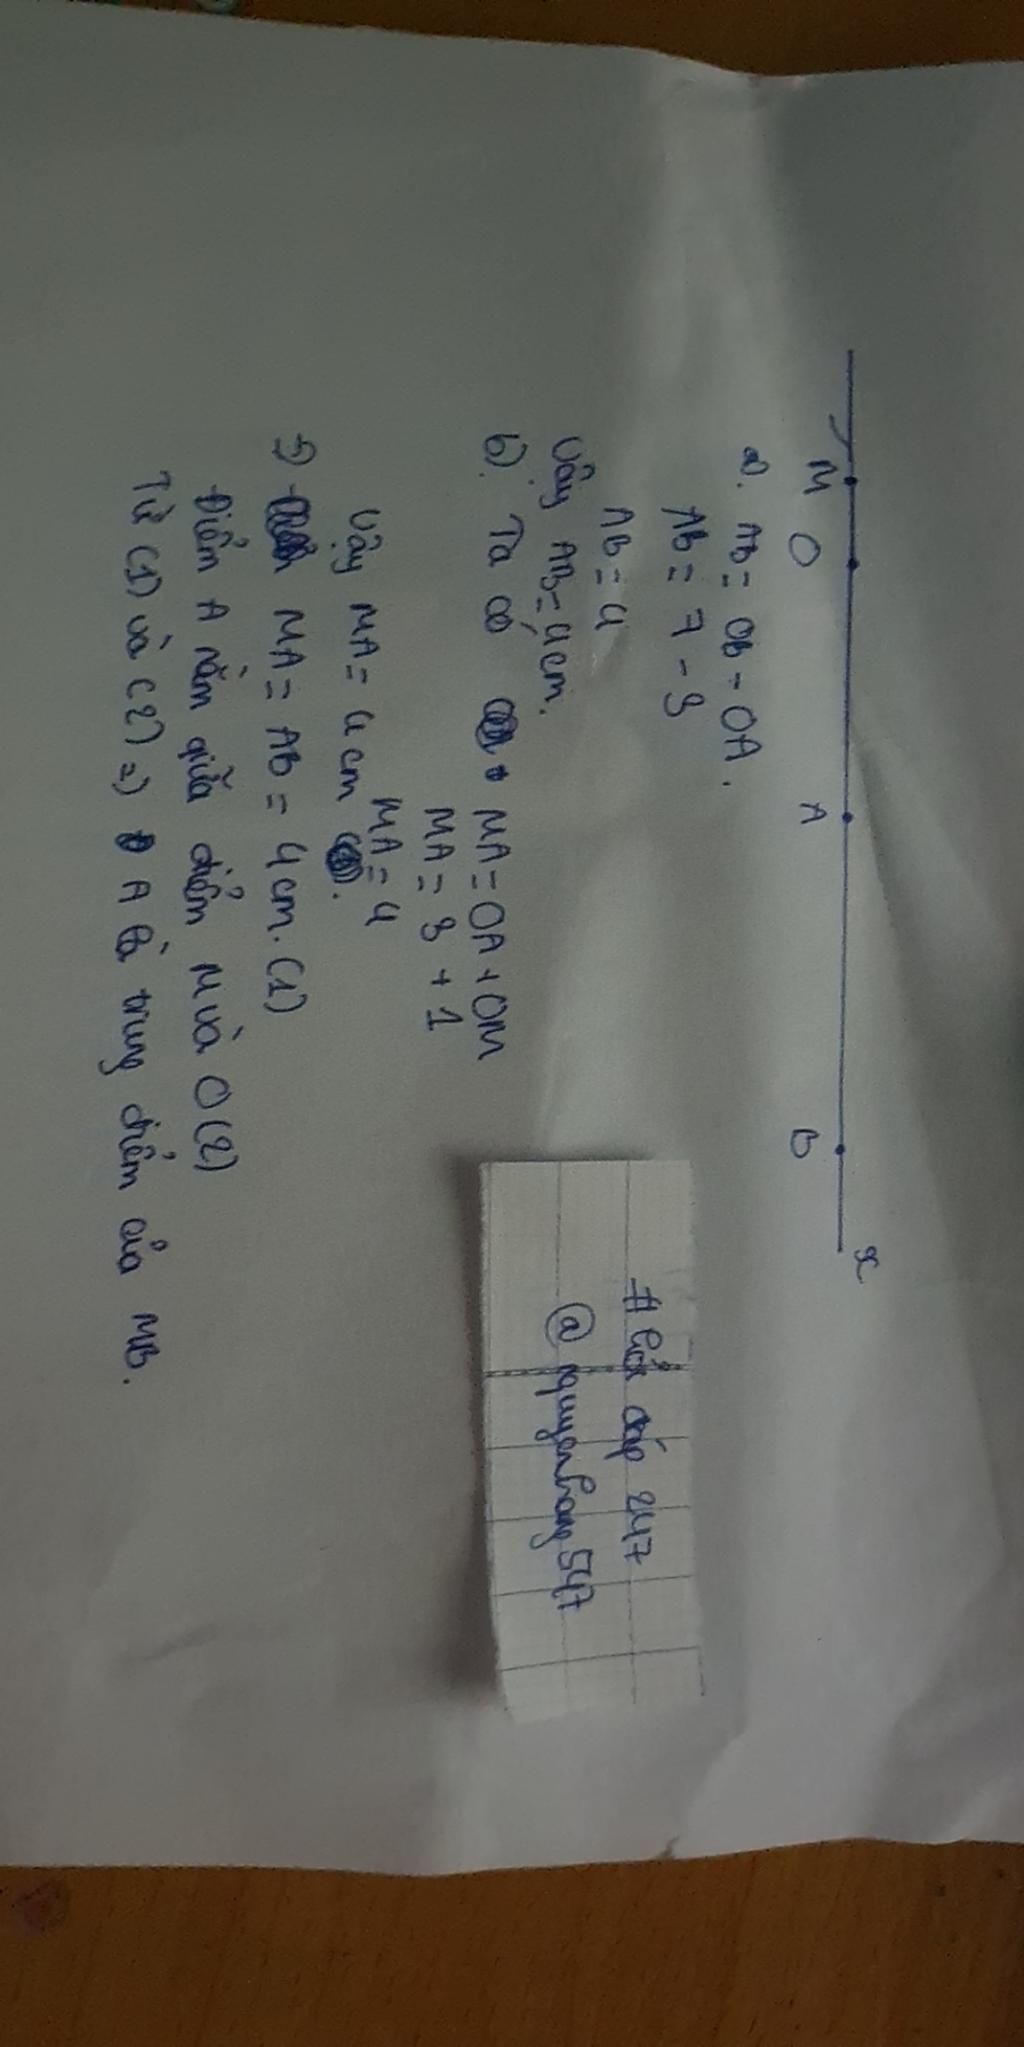 y M O A B x
a). AB = OB - OA.
AB = 7 - 3
AB = 4
Vậy AB = 4cm.
b). Ta có MA = OA + OM
MA = 3 + 1
MA = 4
Vậy MA = 4cm
MA = AB = 4cm. (1)
Điểm A nằm giữa điểm M và O (2)
Từ (1) và (2) => A là trung điểm của MB.
# hỏi đáp 247
@ nguyenhoang547